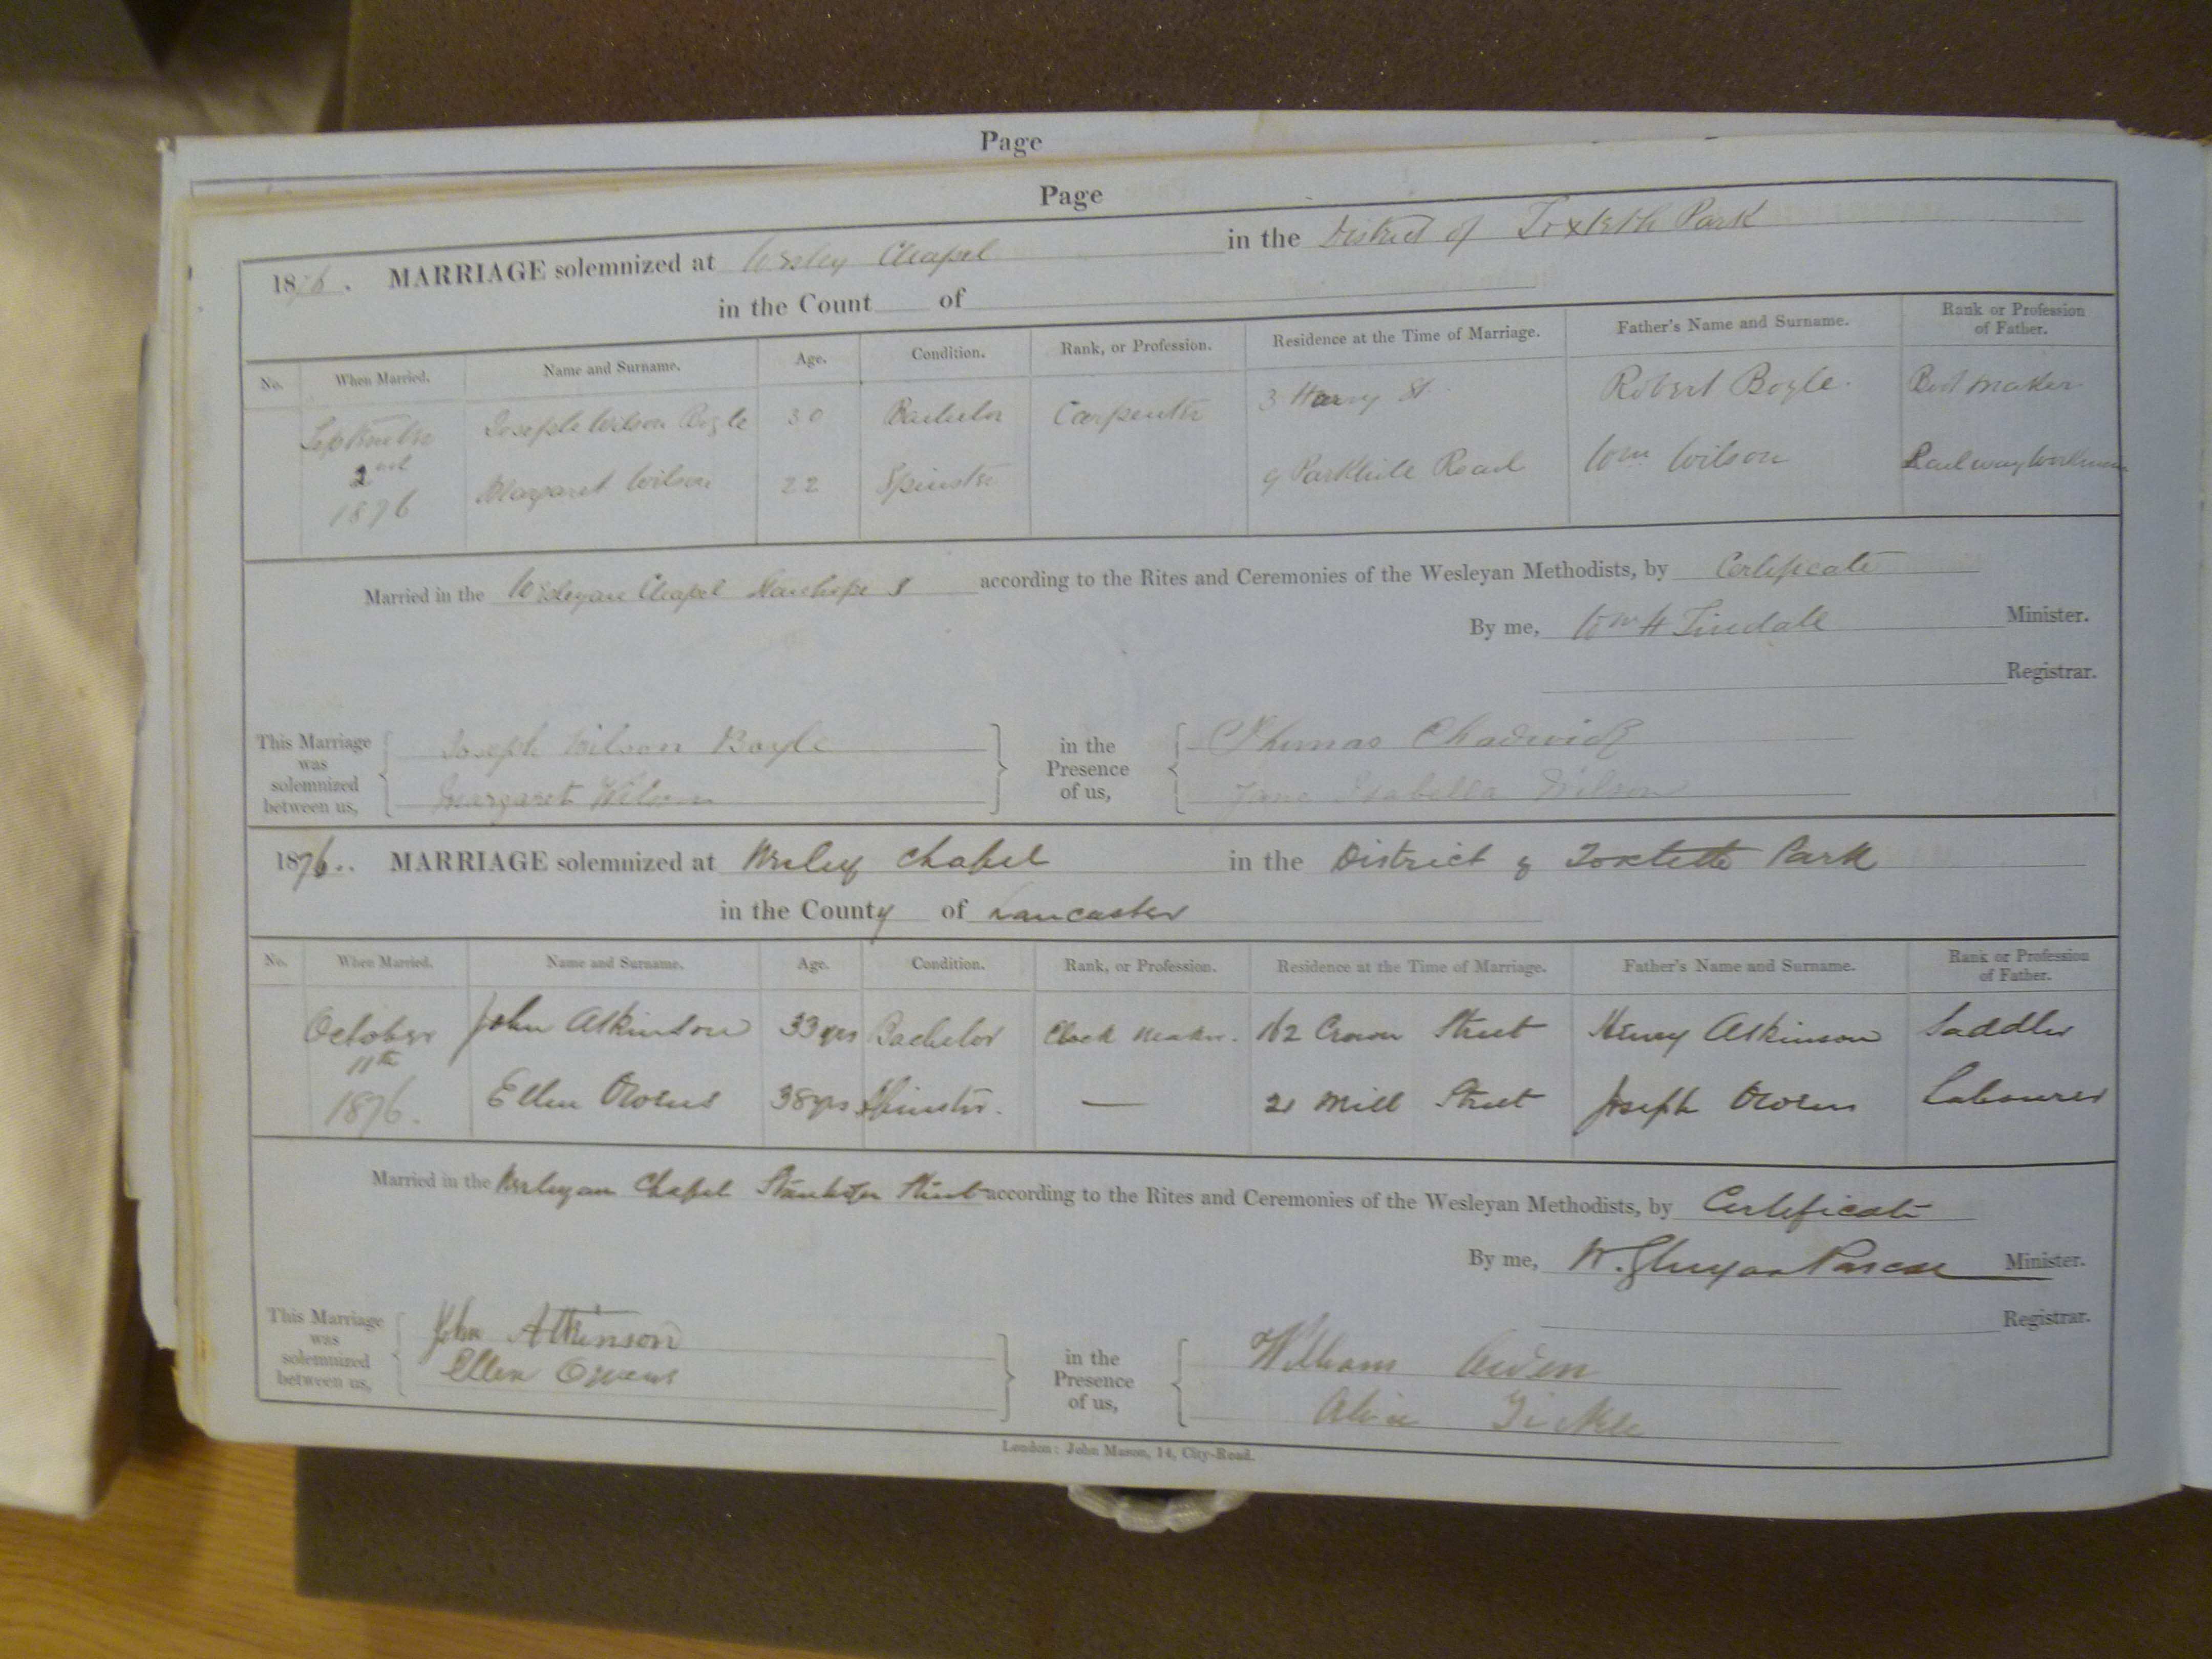 Page
Page
1876. MARRIAGE solemnized at Wesley Chapel in the District of Toxteth Park
in the Count of
No. When Married. Name and Surname. Age. Condition. Rank, or Profession. Residence at the Time of Marriage. Father's Name and Surname. Rank or Profession of Father.
September 2nd 1876
Joseph Wilson Boyle 30 Bachelor Carpenter 3 Harry St. Robert Boyle. Boot maker
Margaret Wilson 22 Spinster 9 Parkhill Road Wm Wilson Railway
Married in the Wesleyan Chapel Stanhope S according to the Rites and Ceremonies of the Wesleyan Methodists, by Certificate
By me, Wm H Tindall Minister.
Registrar.
This Marriage was solemnized between us, Joseph Wilson Boyle in the Presence of us, Thomas Chadwick
Margaret Wilson Jane Isabella Wilson
1876.. MARRIAGE solemnized at Wesley Chapel in the District of Toxteth Park
in the County of Lancaster
No. When Married. Name and Surname. Age. Condition. Rank, or Profession. Residence at the Time of Marriage. Father's Name and Surname. Rank or Profession of Father.
October 11th 1876.
John Atkinson 33 yrs Bachelor Clock Maker. 162 Crown Street Henry Atkinson Saddler
Ellen Owens 38 yrs Spinster. — 21 Mill Street Joseph Owens Labourer
Married in the Wesleyan Chapel Stanhope Street according to the Rites and Ceremonies of the Wesleyan Methodists, by Certificate
By me, W. Pascoe Minister.
Registrar.
This Marriage was solemnized between us, John Atkinson in the Presence of us, William Owen
Ellen Owens Alice Tickle
London: John Mason, 14, City-Road.